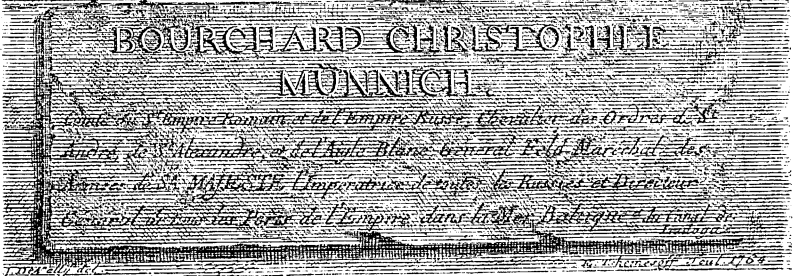 BOURCHARD CHRISTOPHLE
MÜNNICH.
Comte du St. Empire Romain, et de l'Empire Russe, Chevalier des Ordres de St
André, de St Alexandre, et de l'Aigle Blanc General Feld Maréchal des
Armées de SA MAJESTÉ, l'Impératrice de toutes les Russies et Directeur
General de tous les Ports de l'Empire, dans la Mer Baltique et du Canal de
Ladoga
del.
Scul. 1764